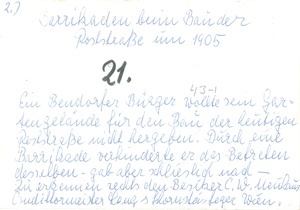 2.)
Barrikaden beim Bau der
Poststraße um 1905
21.
43-1
Ein Bendorfer Bürger wollte sein Gar-
tengelände für den Bau der heutigen
Poststraße nicht hergeben. Durch eine
Barrikade verhinderte er das Betreten
desselben - gab aber schließlich nach -
Zu erkennen rechts den Besitzer C. W.